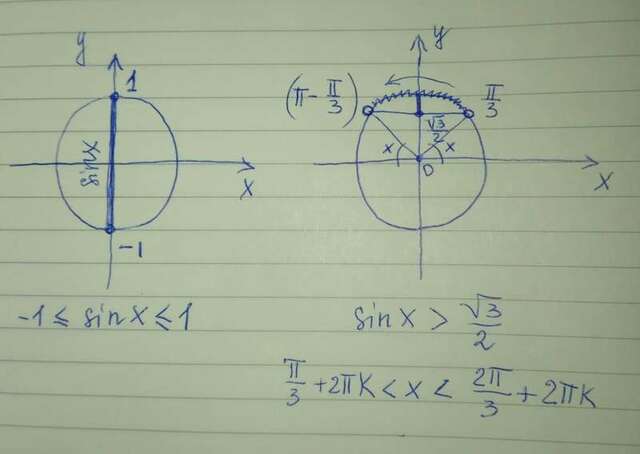 y
1
sin x
x
-1
-1 ≤ sin x ≤ 1
y
(π - π/3)
π/3
√3/2
x
x
0
x
sin x > √3/2
π/3 + 2πK < x < 2π/3 + 2πK